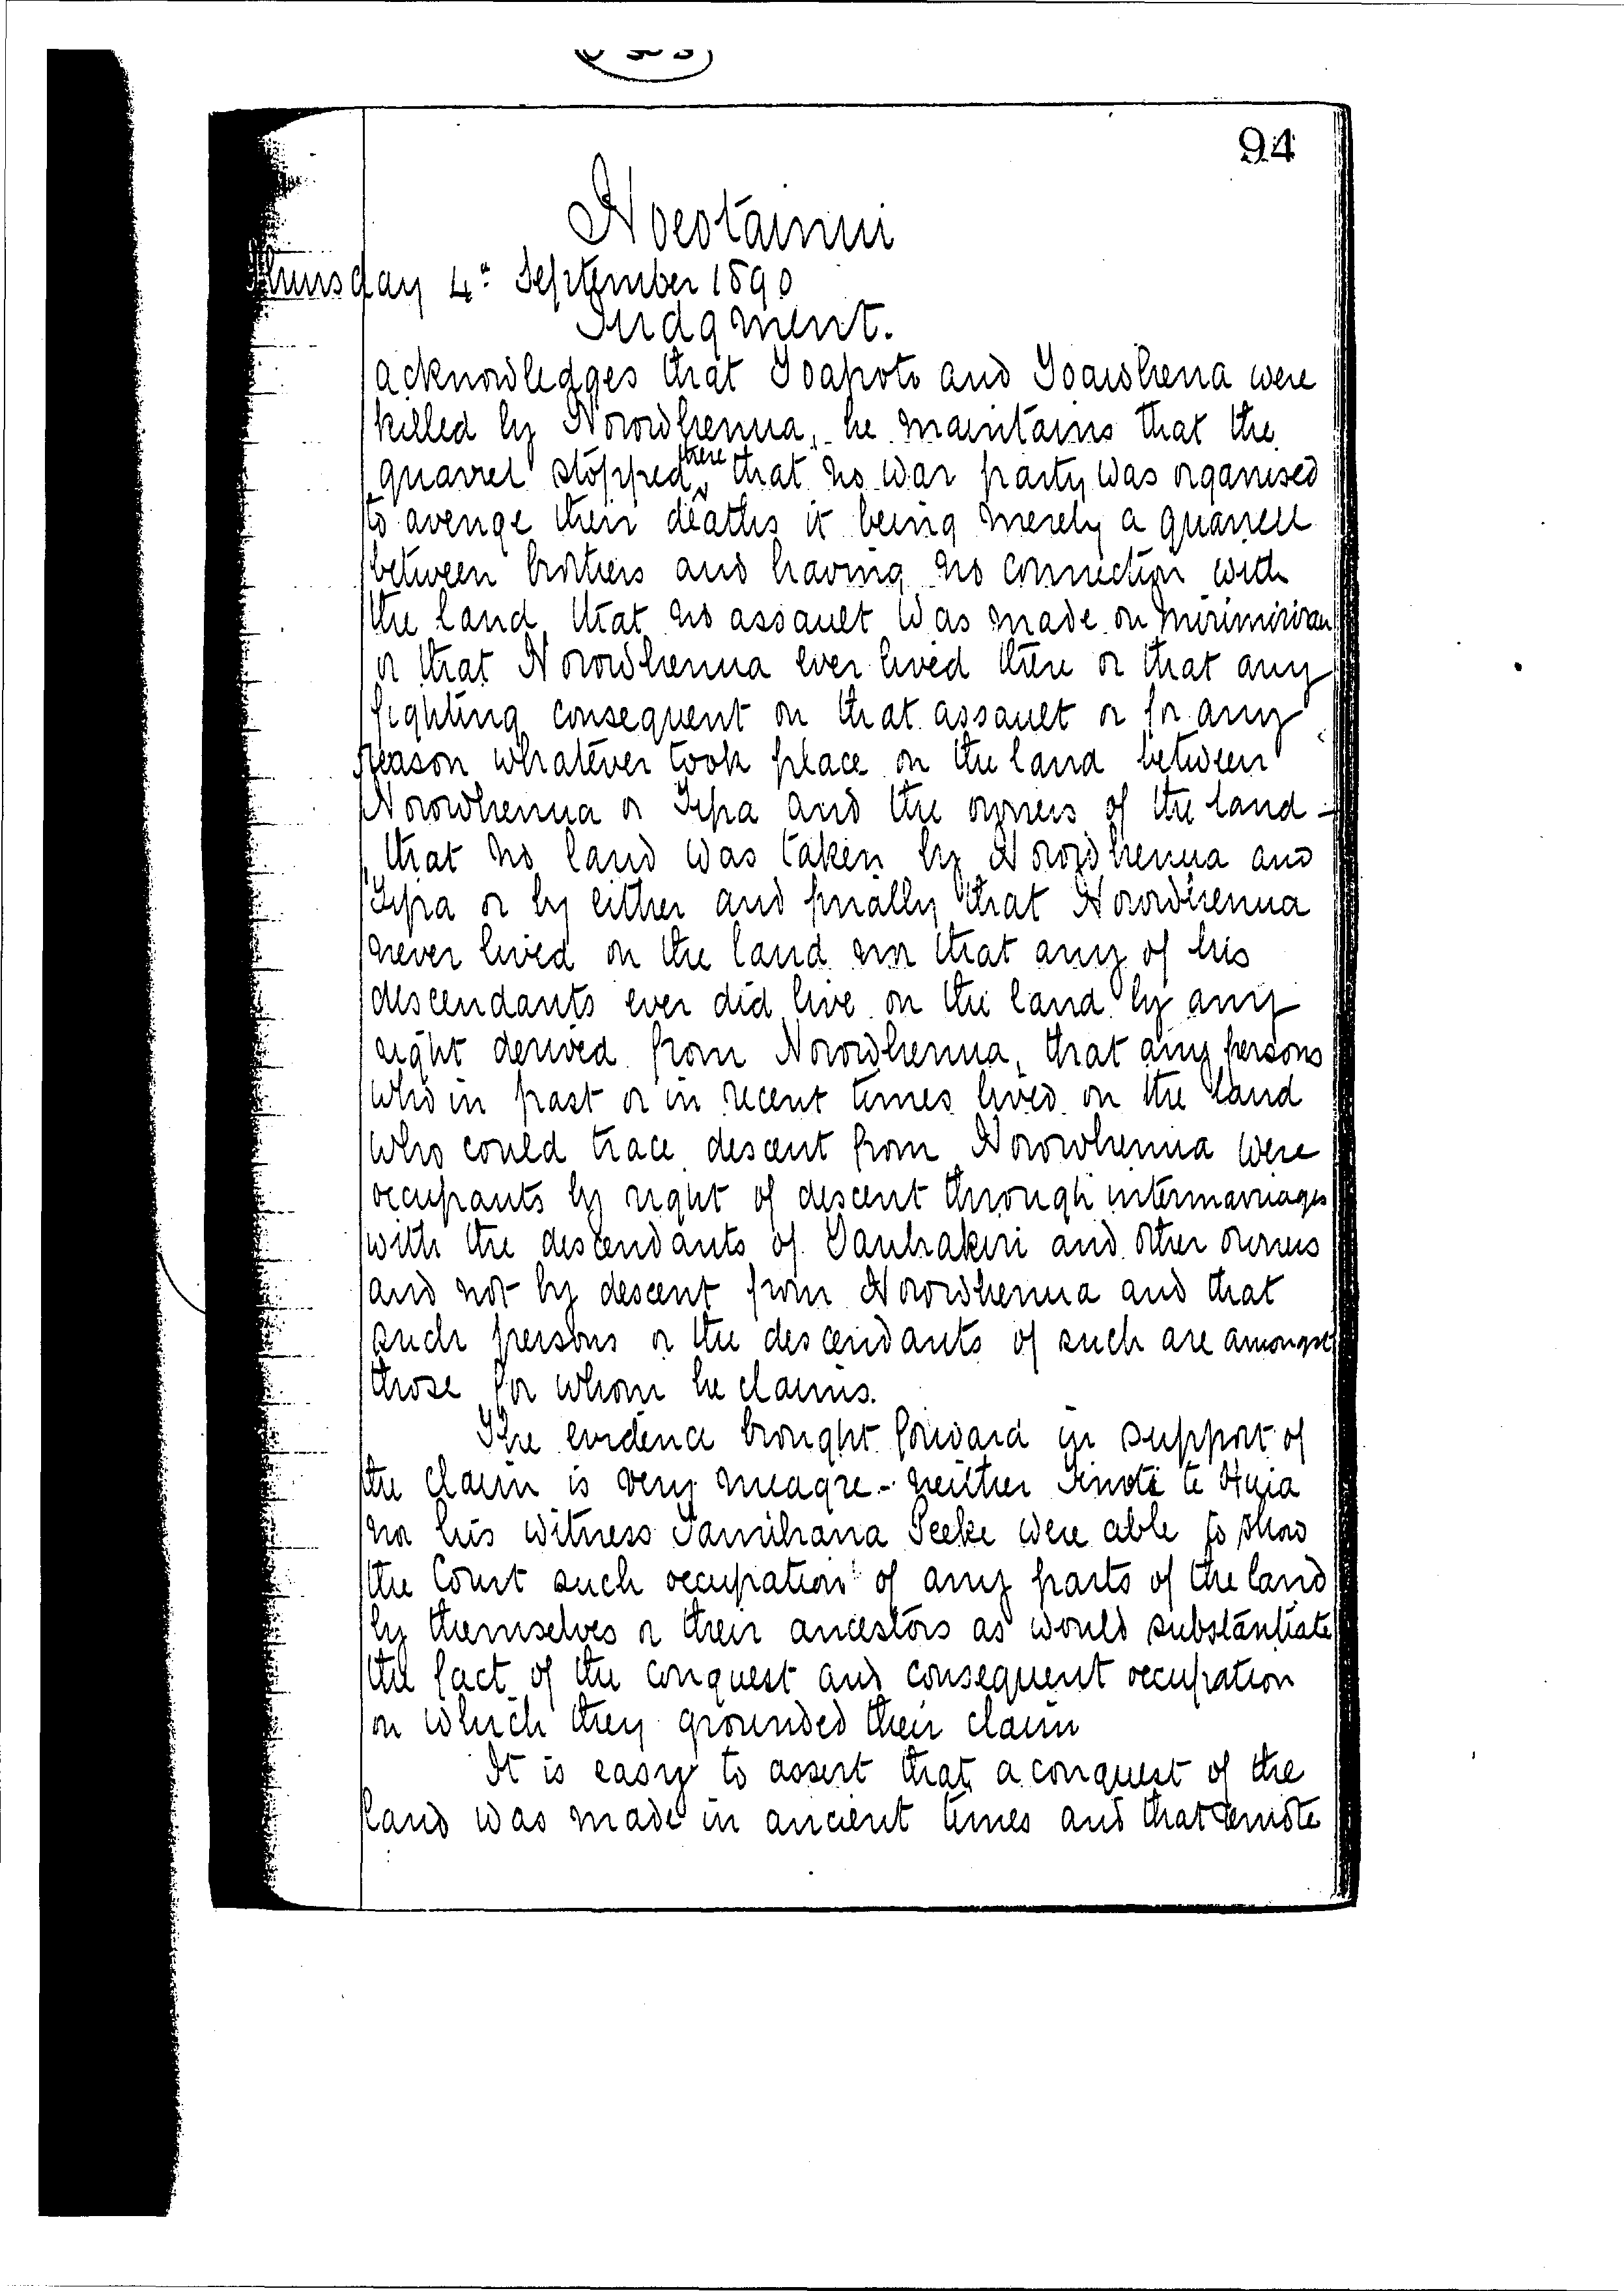 94
Hoeotainui
Thursday 4" September 1890
Judgment.
acknowledges that Toapoto and Toawhena were
killed by Horowhenua, he maintains that the
quarrel stopped there that no war party was organised
to avenge their deaths it being merely a quarrell
between brothers and having no connection with
the land, that no assault was made on Mirimirirau
or that Horowhenua ever lived there or that any
fighting consequent on that assault or for any
reason whatever took place on the land between
Horowhenua or Ipa and the owners of the land -
that no land was taken by Horowhenua and
or by either and finally that Horowhenua
never lived on the land nor that any of his
descendants ever did live on the land by any
right derived from Horowhenua, that any persons
who in past or in recent times lived on the land
who could trace descent from Horowhenua were
occupants by right of descent through intermarriages
with the descendants of Tauhakiri and other owners
and not by descent from Horowhenua and that
such persons or the descendants of such are amongst
those for whom he claims.
The evidence brought forward in support of
the claim is very meagre - neither te Huia
nor his witness Tamihana Teeke were able to show
the Court such occupation of any parts of the land
by themselves or their ancestors as would substantiate
the fact of the conquest and consequent occupation
on which they grounded their claim
It is easy to assert that a conquest of the
land was made in ancient times and that remote